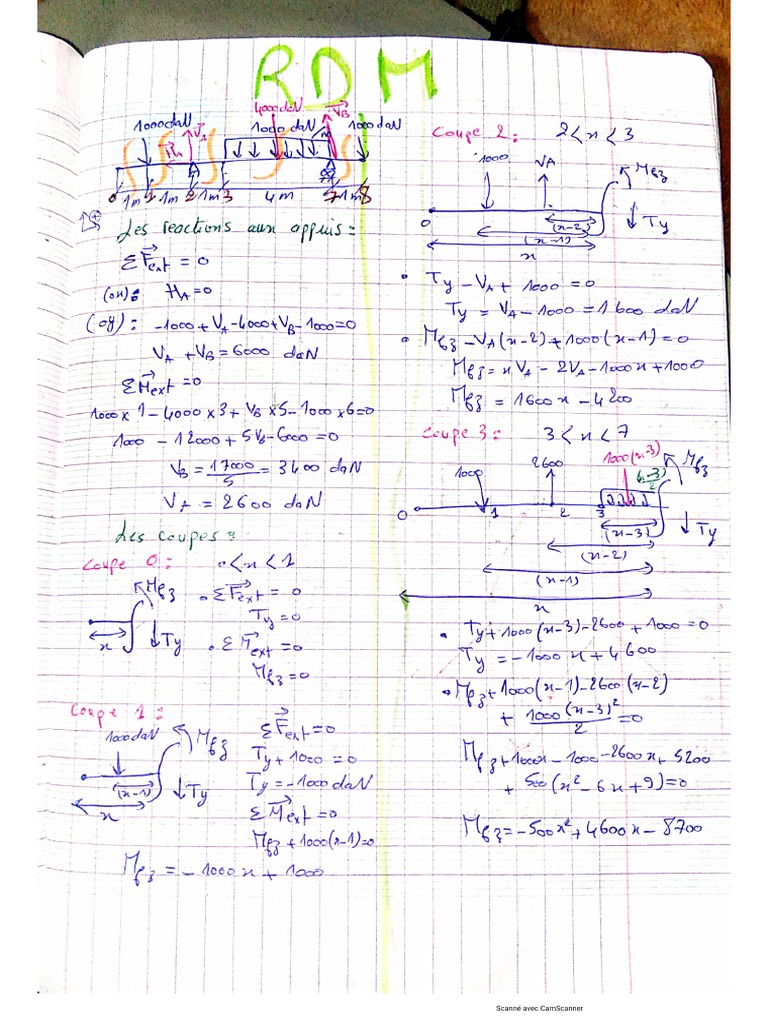 RDM
4000daN VB
1000daN VA 1000 daN/m 1000daN
HA
0 1 2 3 7 8
1m 1m 1m 4m 1m
Les reactions aux appuis:
ΣFext = 0
(ox): HA=0
(oy): -1000+VA-4000+VB-1000=0
VA + VB = 6000 daN
ΣMext = 0
1000x1-4000x3+VBx5-1000x6=0
1000 - 12000 + 5VB-6000 = 0
VB = 17000/5 = 3400 daN
VA = 2600 daN
Les coupes:
Coupe 0: 0<x<1
Mfz
x
Ty
• ΣFext = 0
Ty = 0
• ΣMext = 0
Mfz = 0
Coupe 1:
1000daN
Mfz
(x-1)
Ty
x
ΣFext = 0
Ty + 1000 = 0
Ty = -1000 daN
ΣMext = 0
Mfz + 1000(x-1)=0
Mfz = -1000x + 1000
Coupe 2: 2<x<3
1000 VA Mfz
0
Ty
(x-2)
(x-1)
x
• Ty - VA + 1000 = 0
Ty = VA - 1000 = 1600 daN
• Mfz - VA(x-2) + 1000(x-1) = 0
Mfz = xVA - 2VA - 1000x + 1000
Mfz = 1600x - 4200
Coupe 3: 3<x<7
1000(x-3)
1000 2600 (x-3)/2 Mfz
0 1 2 3
Ty
(x-3)
(x-2)
(x-1)
x
• Ty + 1000(x-3) - 2600 + 1000 = 0
Ty = -1000x + 4600
• Mfz + 1000(x-1) - 2600(x-2)
+ 1000(x-3)²/2 = 0
Mfz + 1000x - 1000 - 2600x + 5200
+ 500(x² - 6x + 9) = 0
Mfz = -500x² + 4600x - 8700
Scanné avec CamScanner